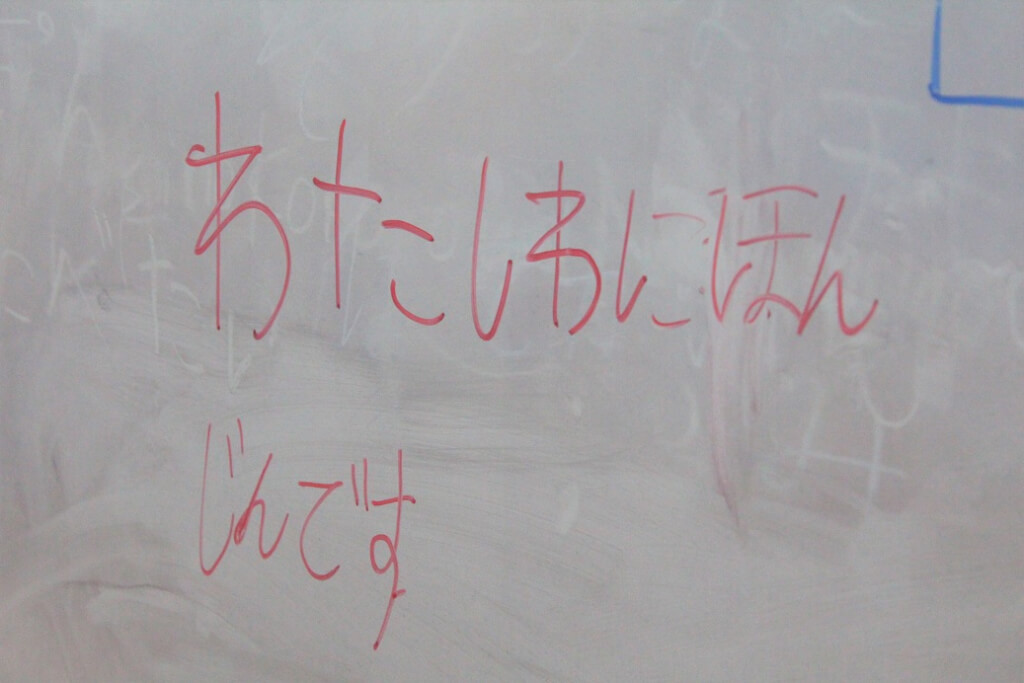 わたしわにほん
じんです